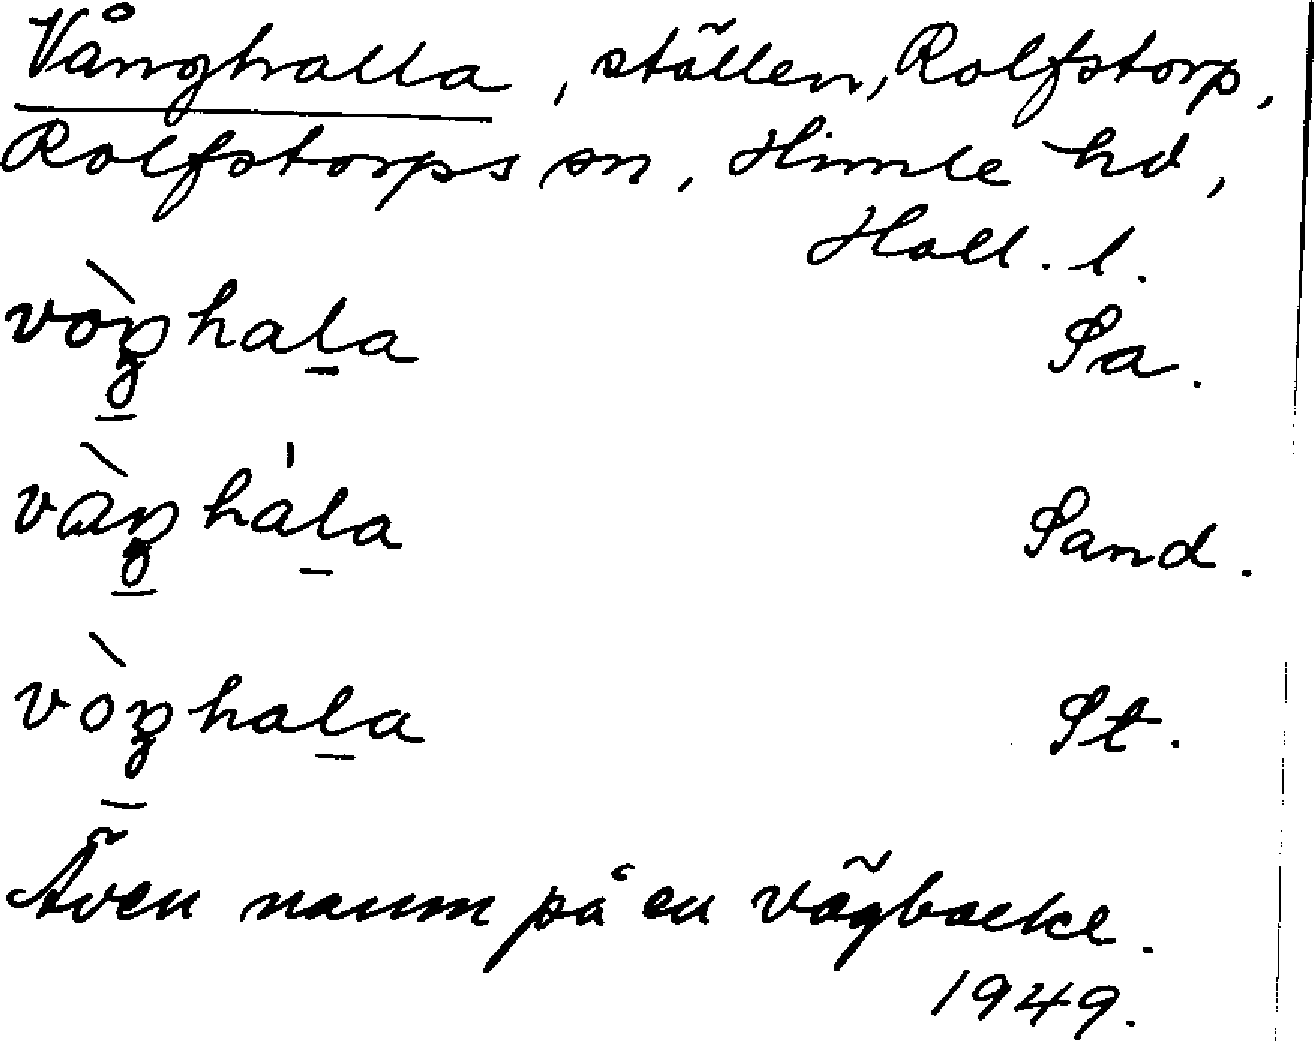 Vånghalla, ställen, Rolfstorp,
Rolfstorps sn, Himle hd,
Hall. l.
vòŋhala Sa.
vàŋhàla Sand.
vòŋhala St.
Även namn på en vägbacke.
1949.